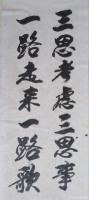 三思考虑三思事
一路走来一路歌